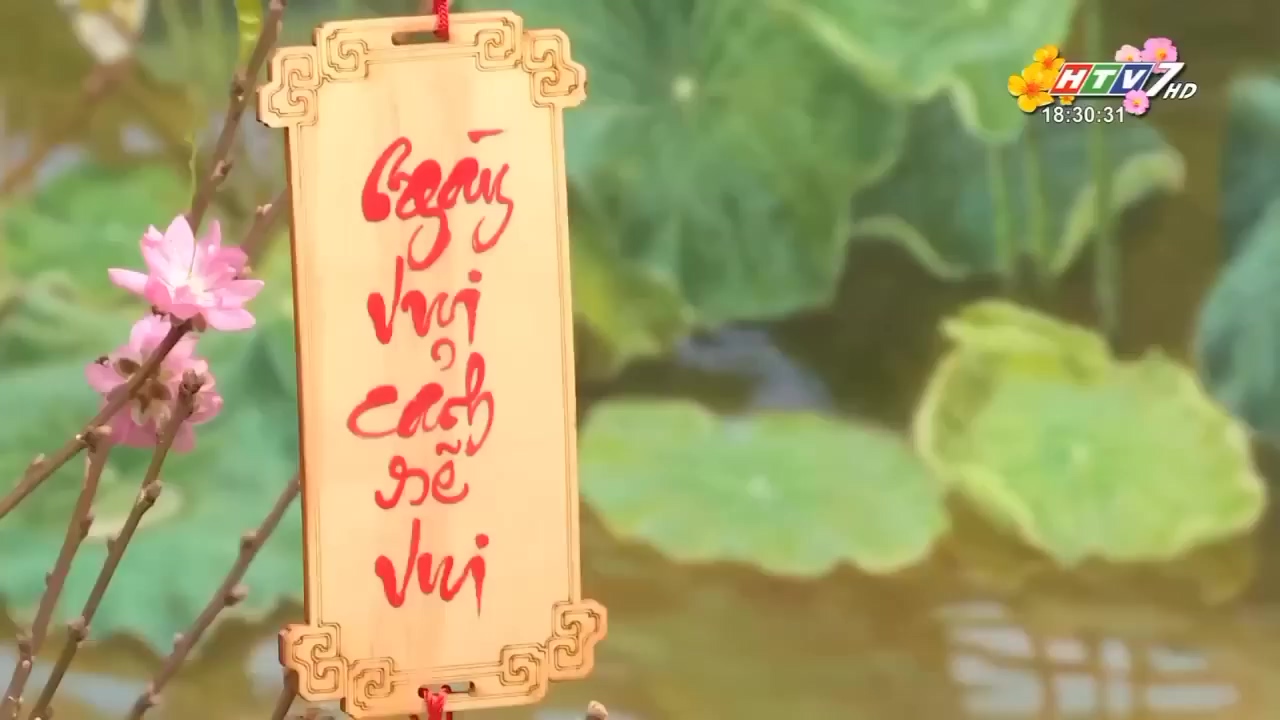 HTV7 HD
18:30:31
Ngày
vui
cảnh
sẽ
vui